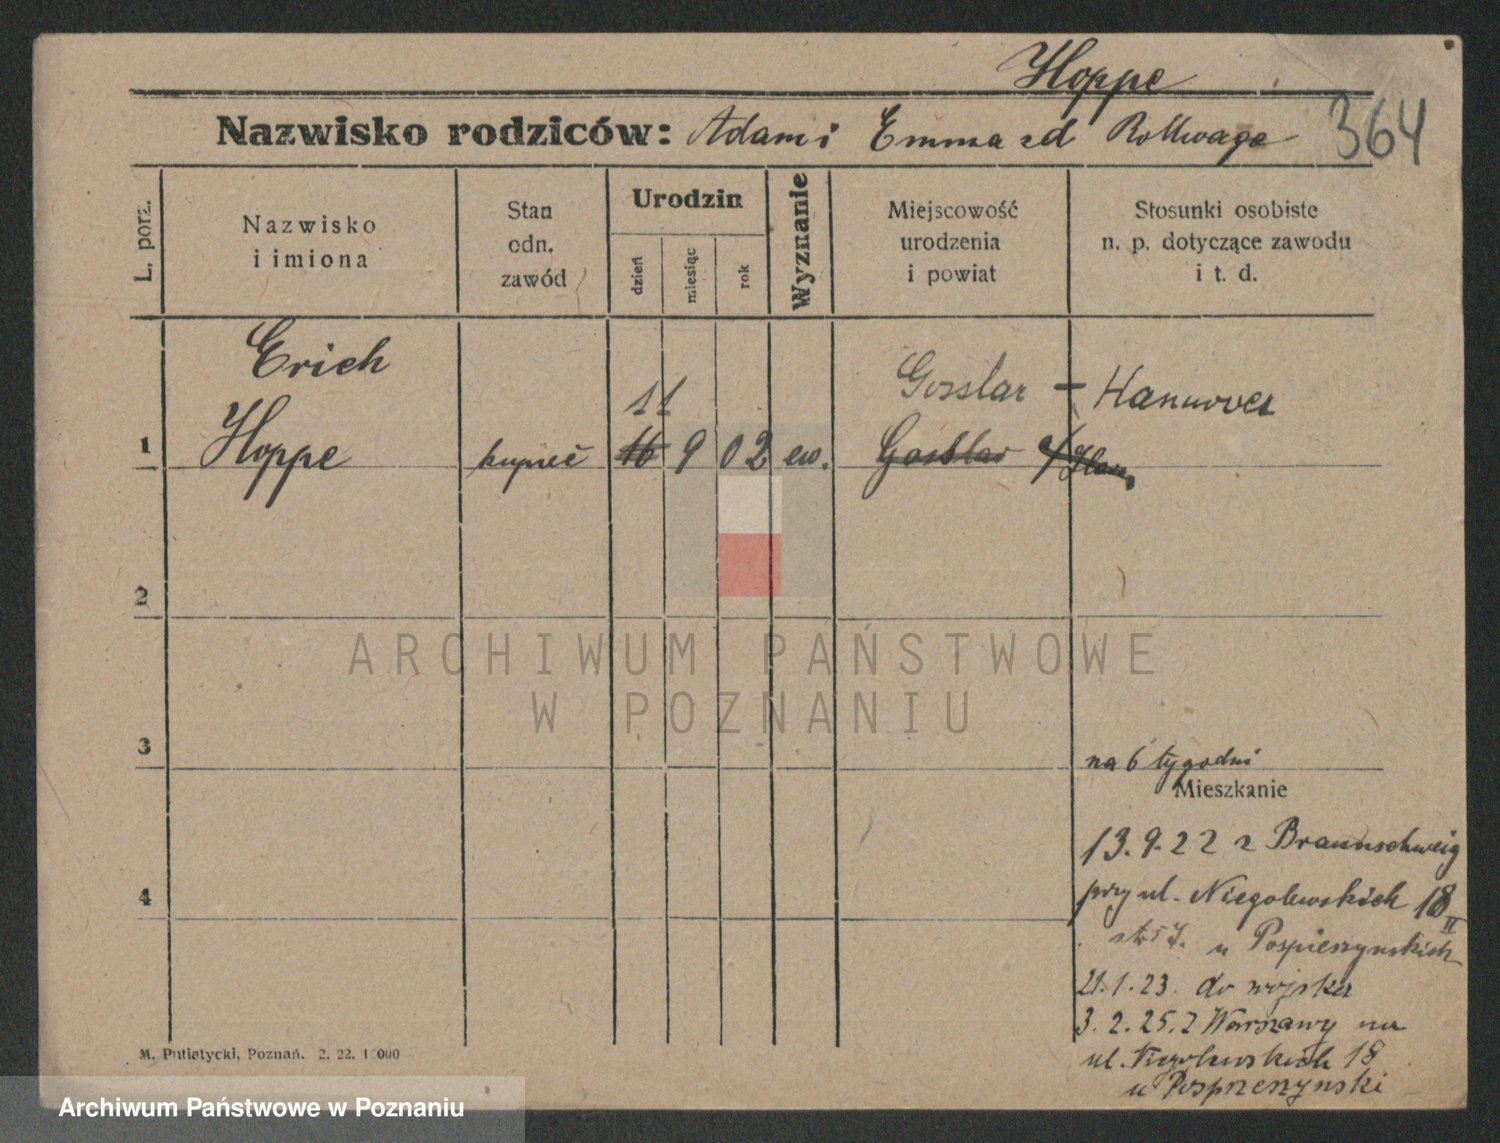 Hoppe
Nazwisko rodziców: Adam i Emma zd Rollwage 364
L. porz.
Nazwisko
i imiona
Stan
odn.
zawód
Urodzin
dzień
miesiąc
rok
Wyznanie
Miejscowość
urodzenia
i powiat
Stosunki osobiste
n. p. dotyczące zawodu
i t. d.
Erich
11
Gosslar - Hannover
1 Hoppe kupiec 16 9 02 ew. Gosslar a/Han.
2
3
na 6 tygodni
Mieszkanie
13.9.22 z Braunschweig
przy ul. Niegolewskich 18 II
u Pospieszynskich
4
21.1.23. do wojska
3.2.25. z Warszawy na
ul. Niegolewskich 18
u Pospieszynski
M. Putiatycki, Poznań. 2. 22. 1000
ARCHIWUM PAŃSTWOWE
W POZNANIU
Archiwum Państwowe w Poznaniu